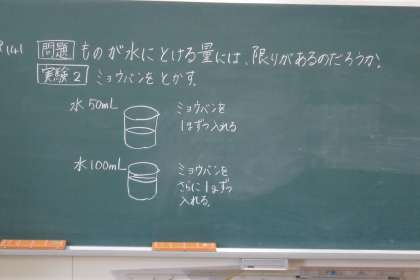 P141 問題 ものが水にとける量には、限りがあるのだろうか?
実験2 ミョウバンをとかす。
水50mL
ミョウバンを
1はずつ入れる
水100mL
ミョウバンを
さらに1はずつ
入れる。